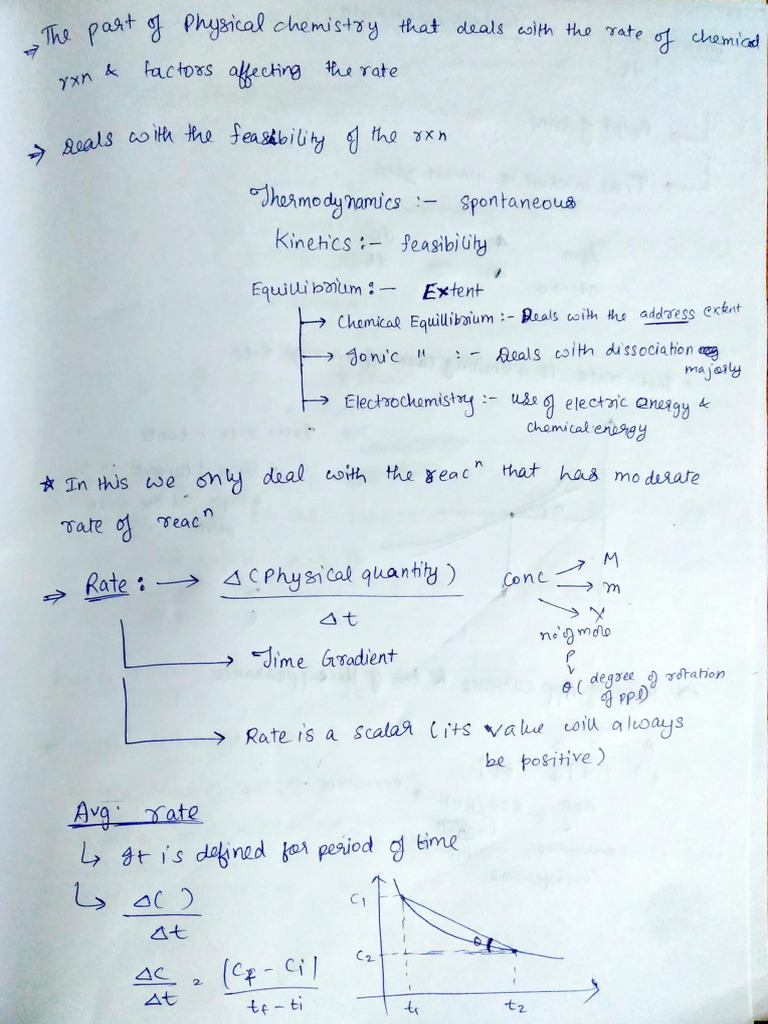 ⇒ The part of Physical chemistry that deals with the rate of chemical
rxn & factors affecting the rate
⇒ Deals with the feasibility of the rxn
Thermodynamics :- spontaneous
Kinetics :- feasibility
Equillibrium :- Extent
→ Chemical Equillibrium :- Deals with the address extent
→ Ionic " :- Deals with dissociation
majorly
→ Electrochemistry :- use of electric energy &
chemical energy
* In this we only deal with the reacⁿ that has moderate
rate of reacⁿ
⇒ Rate : → Δ(Physical quantity)
Δt
conc → M
→ m
→ X
no of mole
P
V
θ (degree of rotation
of PPL)
→ Time Gradient
→ Rate is a scalar (its value will always
be positive)
Avg. rate
↳ It is defined for period of time
↳ Δ( )
Δt
ΔC = |Cf - Ci|
Δt tf - ti
C1
C2
θ
t1 t2